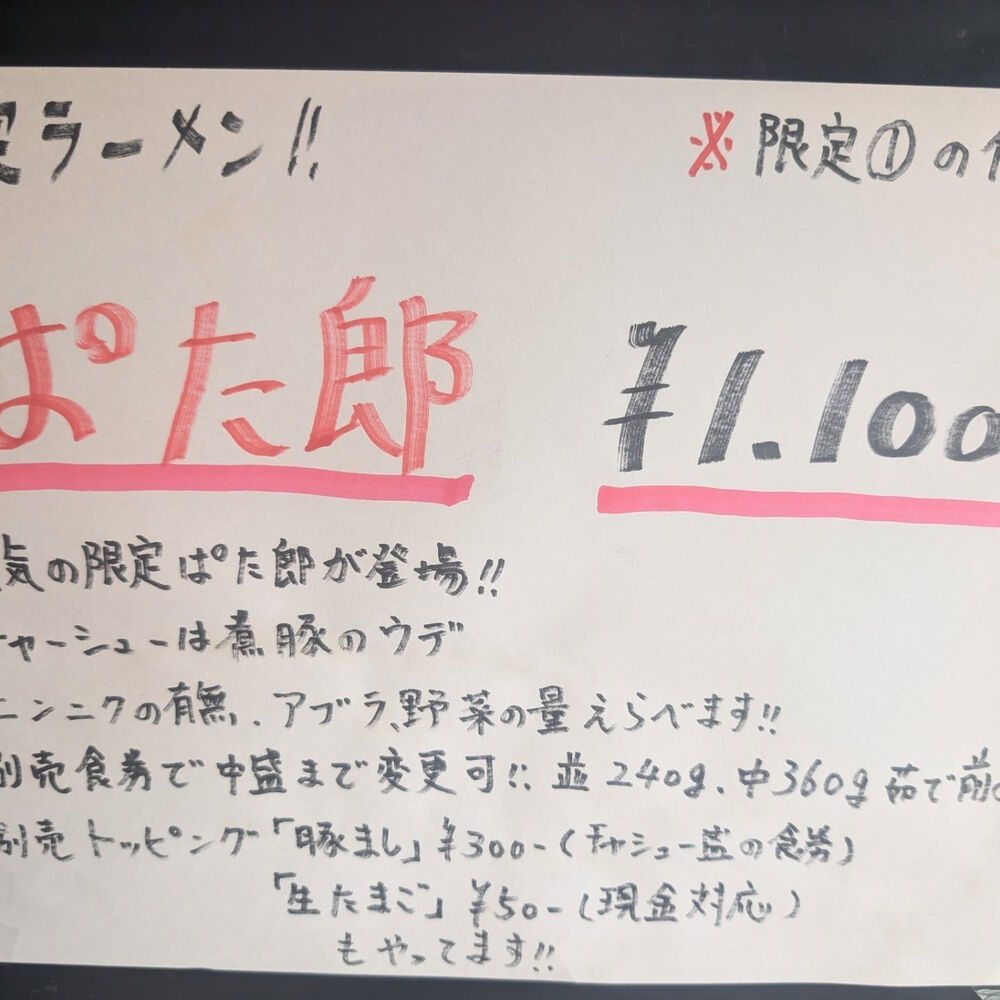 ラーメン!!
※限定①の
ぱた郎 ¥1.100
気の限定ぱた郎が登場!!
チャーシューは煮豚のウデ
ニンニクの有無、アブラ、野菜の量えらべます!!
別売食券で中盛まで変更可!! 並240g、中360g 茹で前
別売トッピング「豚まし」¥300-(チャーシュー盛の食券)
「生たまご」¥50-(現金対応)
もやってます!!